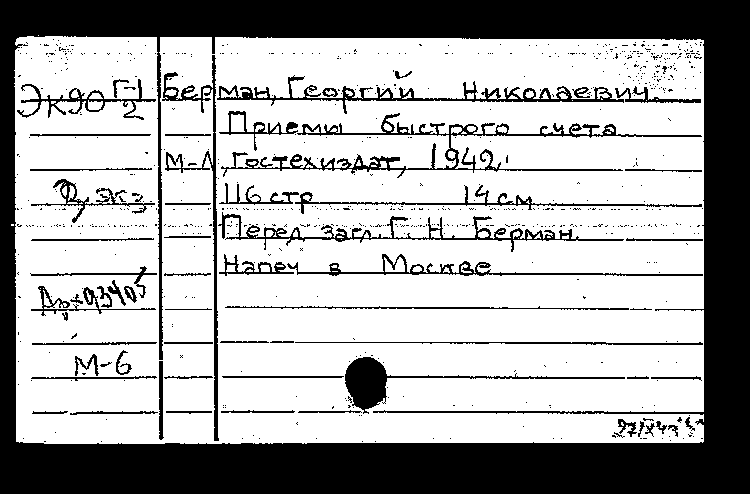 ЭК90 Г-1/2
Берман, Георгий Николаевич
Приемы быстрого счета
М-Л, Гостехиздат, 1942.
2 экз
116 стр 14 см
Перед загл. Г. Н. Берман.
Напеч в Москве
М-6